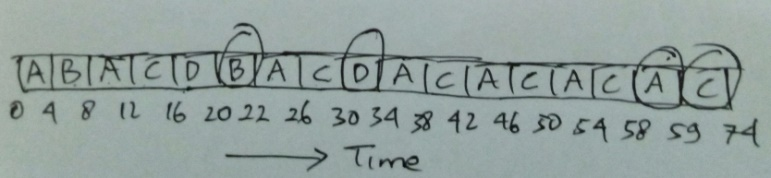 A B A C D B A C D A C A C A C A C
0 4 8 12 16 20 22 26 30 34 38 42 46 50 54 58 59 74
Time